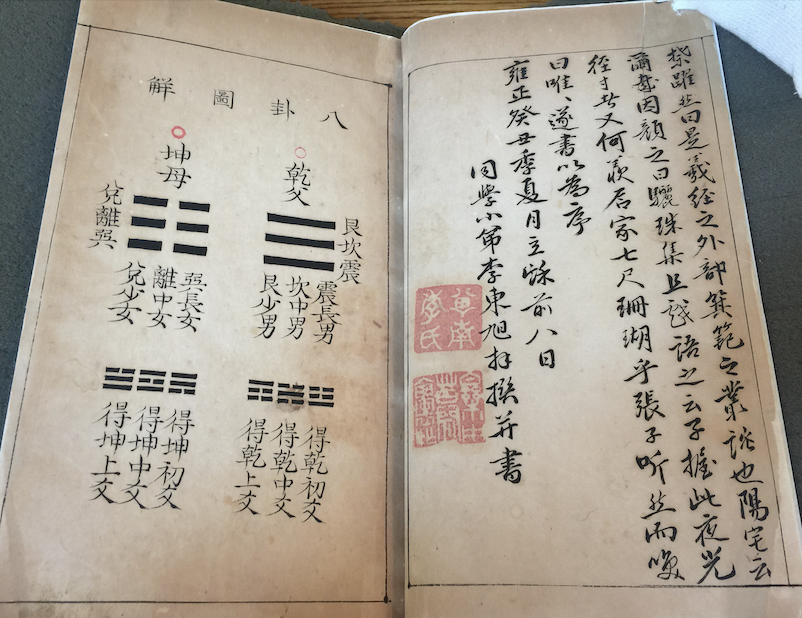 槩雖然曰是羲經之外部箕範之叢談也陽宅云
爾哉因顏之曰驪珠集且戲語之云子握此夜光
徑寸者又何羨石家七尺珊瑚乎張子听然而喚
曰唯唯遂書以為序
雍正癸丑季夏月立秌前八日
同學小弟李東旭拜撰并書
李氏
八卦圖解
乾父
艮坎震
震長男
坎中男
艮少男
得乾初爻
得乾中爻
得乾上爻
坤母
兌離巽
巽長女
離中女
兌少女
得坤初爻
得坤中爻
得坤上爻